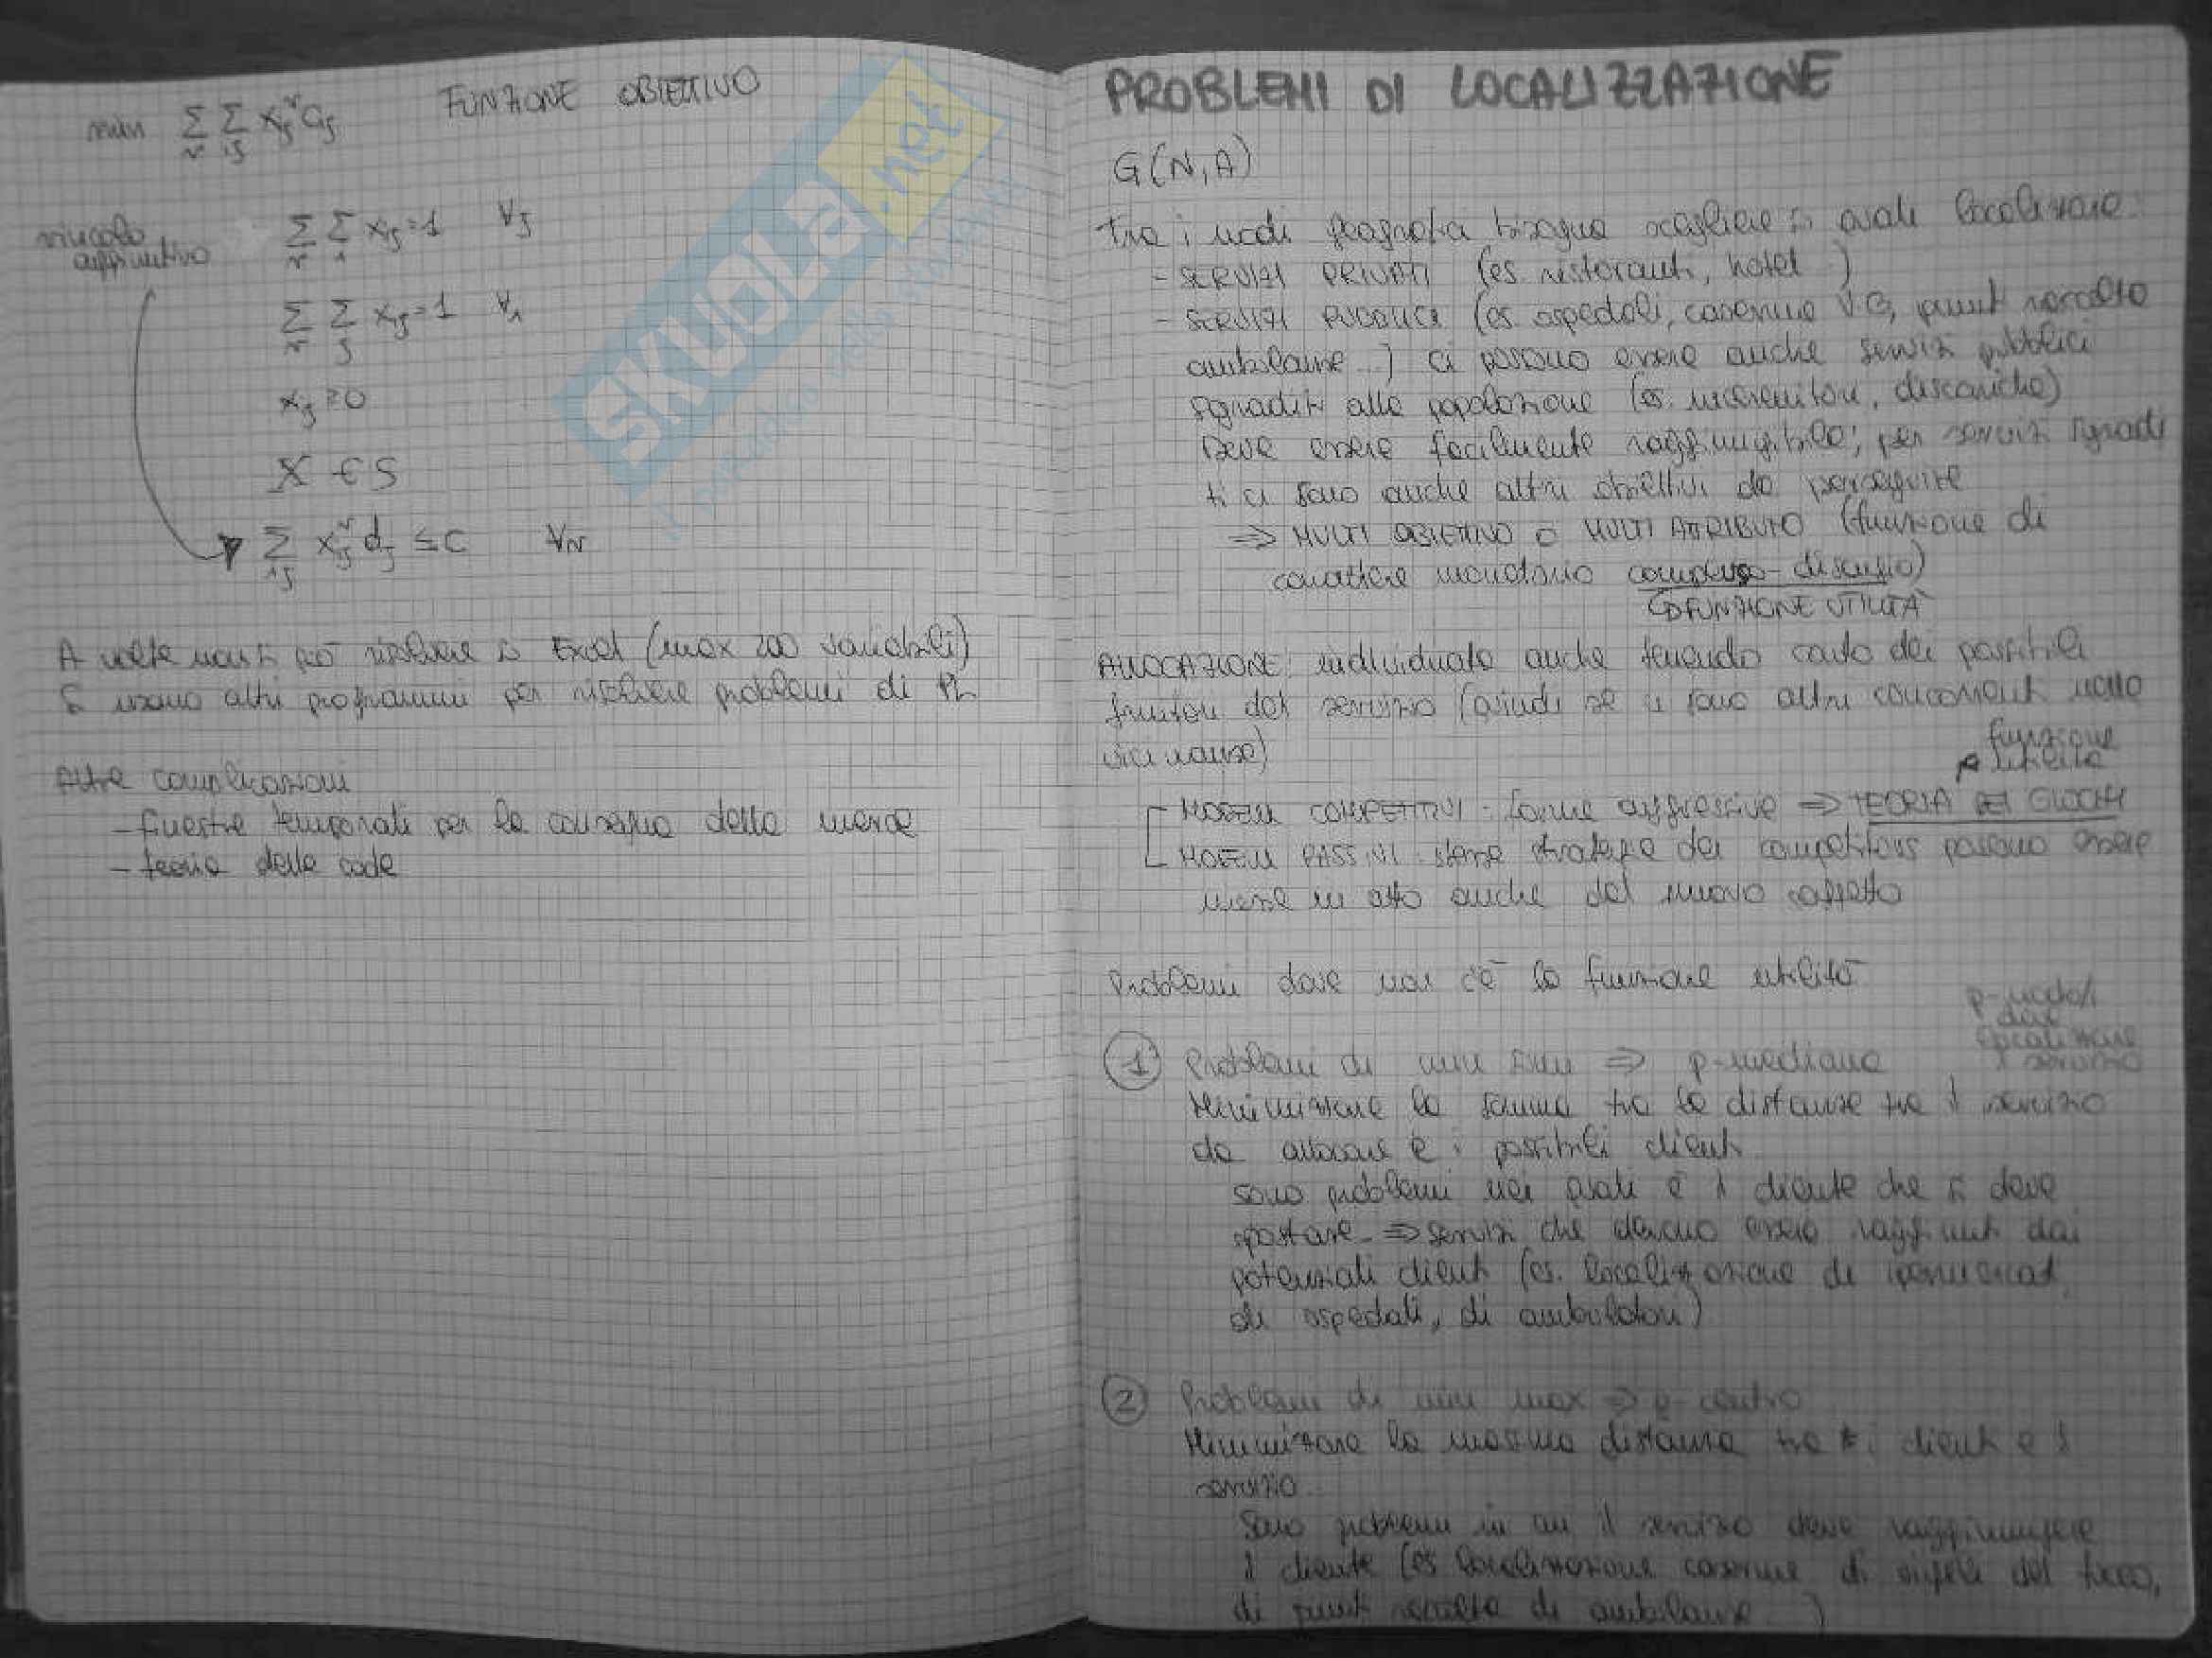 min Σ Σ xᵢⱼᵛ Cᵢⱼ FUNZIONE OBIETTIVO
v ij
vincolo
aggiuntivo
Σ Σ xᵢⱼ = 1 ∀j
v i
Σ Σ xᵢⱼ = 1 ∀i
v j
xᵢⱼ ≥ 0
X ∈ S
Σ xᵢⱼᵛ dⱼ ≤ C ∀v
ij
A volte non si può risolvere in Excel (max 200 variabili)
Si usano altri programmi per risolvere problemi di PL
Altre complicazioni
- finestre temporali per la consegna della merce
- teoria delle code
SKUOLA.net
PROBLEMI DI LOCALIZZAZIONE
G(N,A)
Tra i nodi geografici bisogna scegliere in quale localizzare:
- SERVIZI PRIVATI (es ristoranti, hotel )
- SERVIZI PUBBLICI (es. ospedali, caserme punti raccolta
ambulanze...) ci possono essere anche servizi pubblici
sgraditi alla popolazione (es. inceneritori, discariche)
Deve essere facilmente raggiungibile; per servizi sgradi
ti ci sono anche altri obiettivi da perseguire
⇒ MULTI OBIETTIVO O MULTI ATTRIBUTO (funzione di
carattere monetario compenso-disagio)
↪ FUNZIONE UTILITÀ
ALLOCAZIONE: individuata anche tenendo conto dei possibili
fruitori del servizio (quindi se ci sono altri concorrenti nelle
vicinanze)
funzione
utilità
MODELLI COMPETITIVI: forme aggressive ⇒ TEORIA DEI GIOCHI
MODELLI PASSIVI: stesse strategie dei competitors possono essere
messe in atto anche dal nuovo soggetto
Problemi dove non c'è la funzione utilità
p-nodi
dove
localizzare
il servizio
① Problemi di min sum ⇒ p-mediana
Minimizzare la somma tra le distanze tra il servizio
da allocare e i possibili clienti
sono problemi nei quali è il cliente che si deve
spostare ⇒ servizi che devono essere raggiunti dai
potenziali clienti (es. localizzazione di ipermercati,
di ospedali, di ambulatori)
② Problemi di min max ⇒ p-centro
Minimizzare la massima distanza tra i clienti e il
servizio.
Sono problemi in cui il servizio deve raggiungere
il cliente (es localizzazione caserme di vigili del fuoco,
di punti raccolta di ambulanze...)